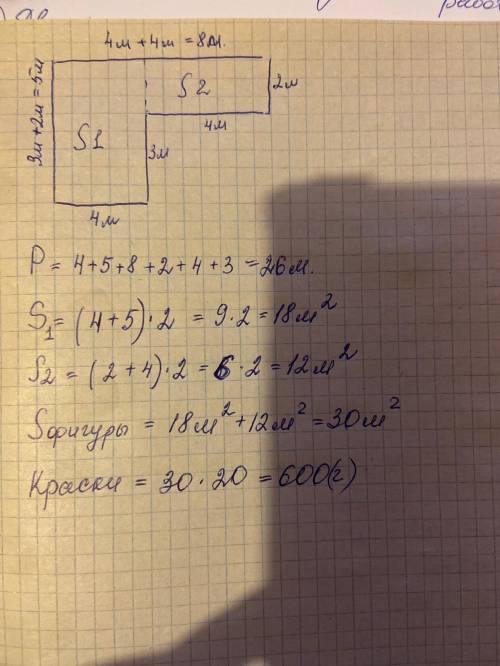 4м + 4м = 8м.
3м + 2м = 5м
S1
S2
2м
4м
3м
4м
P = 4+5+8+2+4+3 = 26м.
S₁ = (4+5)·2 = 9·2 = 18м²
S2 = (2+4)·2 = 6·2 = 12м²
Sфигуры = 18м² + 12м² = 30м²
Краски = 30·20 = 600(г)